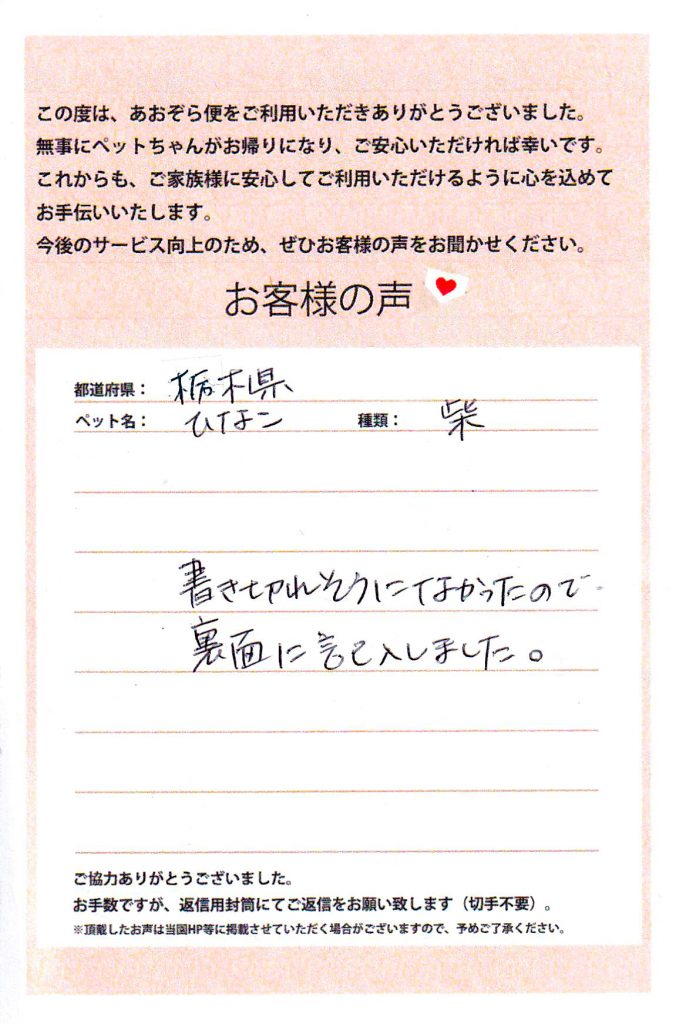 この度は、あおぞら便をご利用いただきありがとうございました。
無事にペットちゃんがお帰りになり、ご安心いただければ幸いです。
これからも、ご家族様に安心してご利用いただけるように心を込めて
お手伝いいたします。
今後のサービス向上のため、ぜひお客様の声をお聞かせください。
お客様の声
都道府県： 栃木県
ペット名： ひなこ 種類： 柴
書き切れそうになかったので
裏面に記入しました。
ご協力ありがとうございました。
お手数ですが、返信用封筒にてご返信をお願い致します（切手不要）。
※頂戴したお声は当園HP等に掲載させていただく場合がございますので、予めご了承ください。